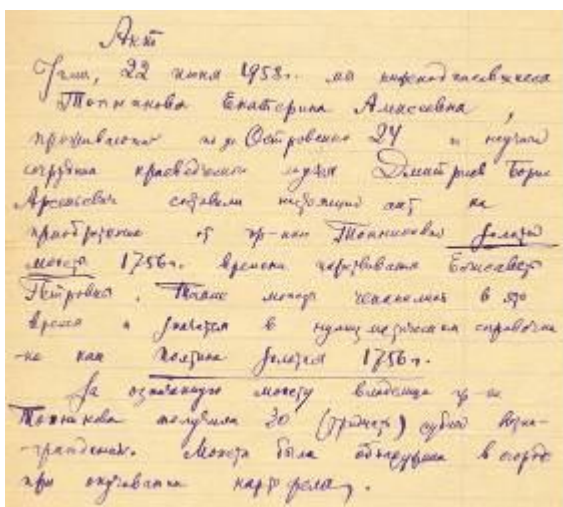 Акт
22 июня 1958г. мы нижеподписавшиеся
Екатерина Алексеевна,
проживающая по ул Островского 24 и научный
сотрудник краеведческого музея Дмитриев Борис
Арсеньевич составили настоящий акт на
приобретение от гр-нки золотой
монеты 1756г. времени царствования Елисаветы
Петровны. Такие монеты чеканились в это
время и значатся в нумизматическом справочни
-ке как полтина золотая 1756г.
За означенную монету владелица гр-ка
получила 30 (тридцать) рублей возна-
-граждения. Монета была обнаружена в огороде
при окучивании картофеля.